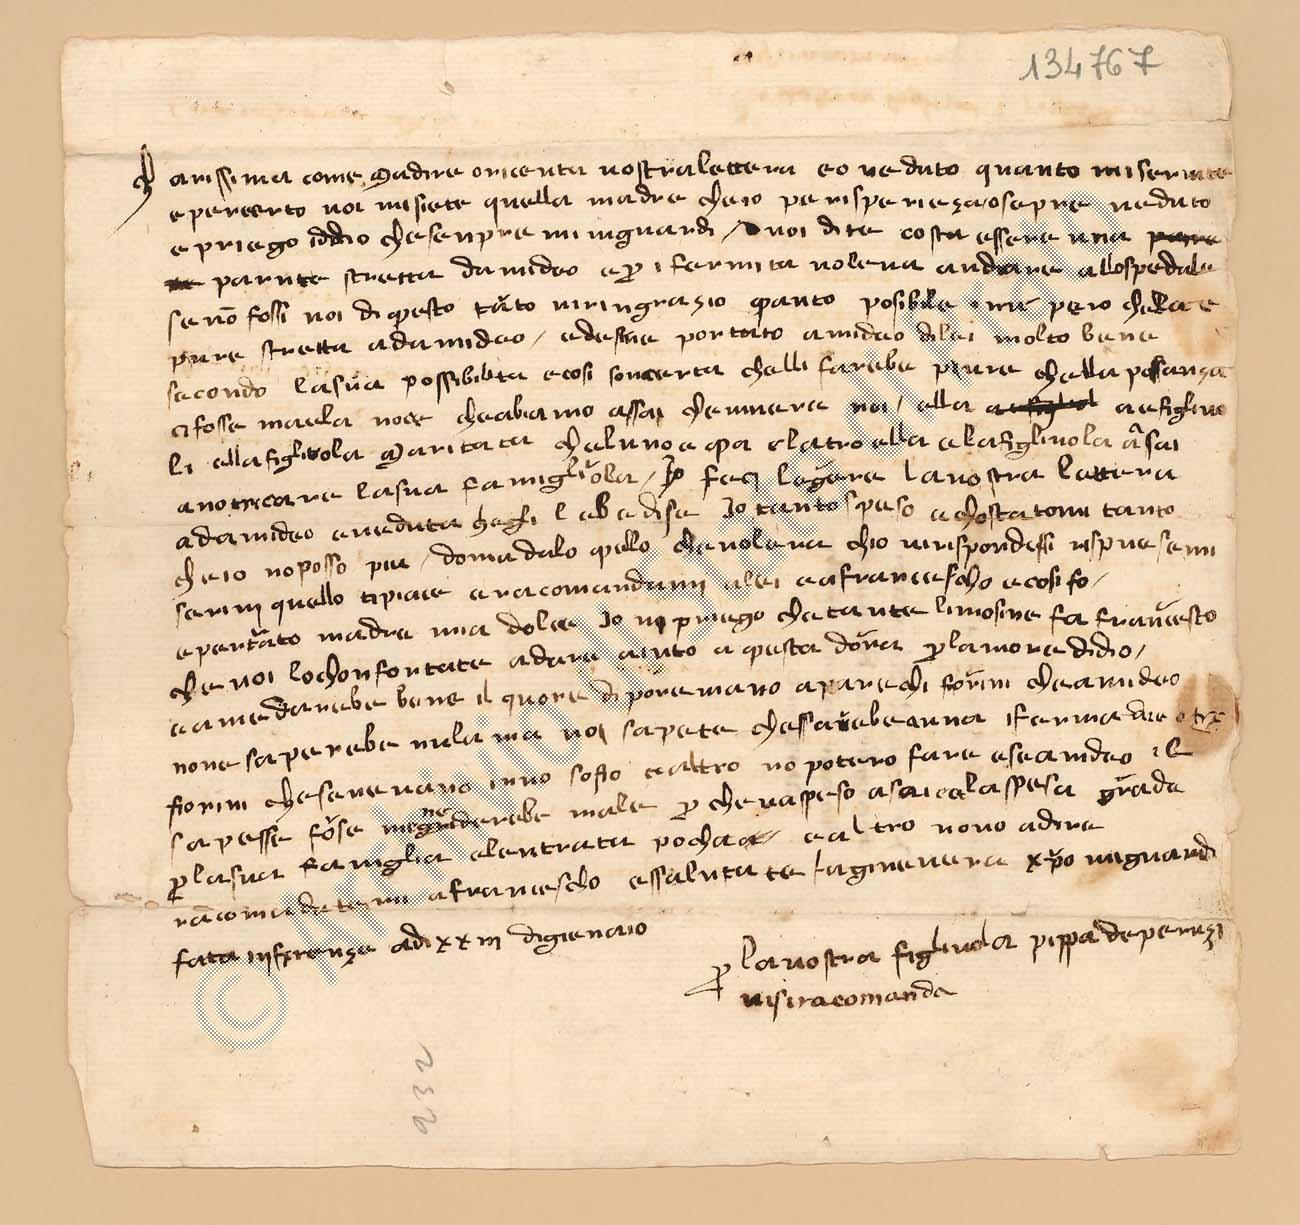 134767
Charissima come madre o riceuta vostra lettera e o veduto quanto mi scrivete
e per certo voi mi siete quella madre che io per isperieza o sepre veduto
e priego iddio che senpre mi vi guardi / voi dite costa essere una
parute stretta d amideo e p ifermita voleva andare allo spedale
se nō fossi voi di questo tāto vi ringrazio quanto posibile m'è pero che la e
pure stretta ad amideo / ed essne portato amideo di lei molto bene
secondo la sua possibilita e cosi son certa chelli farebe pure chella possanza
ci fosse ma ela noce che abiamo assai che vivere noi / ella a e figliuo
li e lla figliuola maritata che l uno e qua e l atro ella e la figliuola āsai
a noticare la sua famigliuola / Io feci legere la vostra lettera
ad amideo e veduta chegli l ebe dise Io tanto speso e chostatomi tanto
che io no posso piu / domādalo quello che voleva chio vi rispondessi rispuosemi
scrivi quello ti piace e racomandami a lei e a francescho e cosi fo /
e pertāto madre mia dolce Io vi priego che tante limosine fa francescho
che voi lo chonfortate a dare aiuto a questa dōna p l amore di dio /
e a me darebe bene il quore di porre mano a parechi fiorini che amideo
none saperebe nulla ma voi sapete che s avebe una iferma
fiorini che se ne vano inuno sofio e altro no potero fare e se amideo il
sapesse fōse male p che va speso asai e la spesa grāde
p la sua famiglia e l entrata pocha e altro novo a dire
racomādatemi a francescho e ssalutate la ginevera xp̄o vi guardi
fata in firenze adi xxiii di gienaio
p la vostra figliuola pippa de peruzi
vi si racomanda
232
© Archivio di Stato di Prato